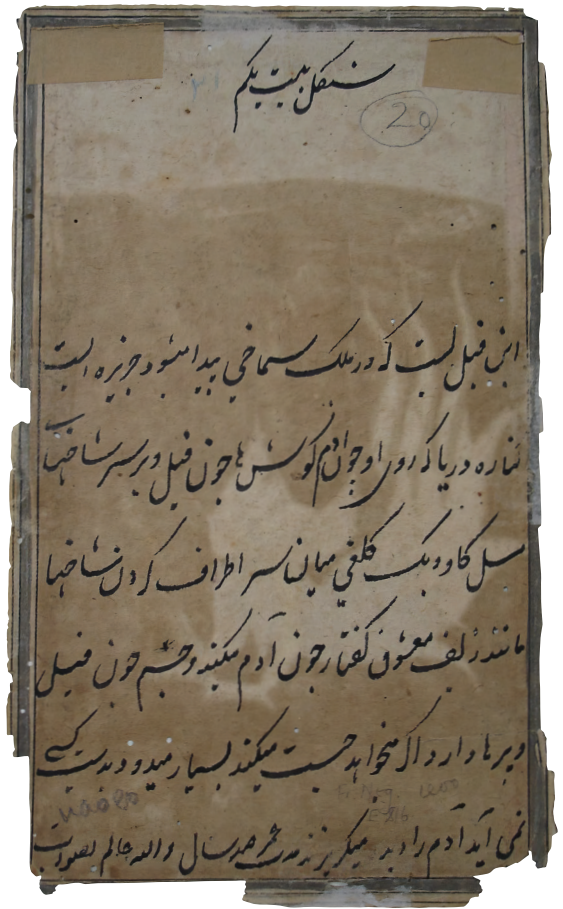 شکل بیست یکم
20
این فیل است که در ملک سماخی پیدا میشود جزیره است
کناره دریا که روی او چون آدم گوش ها چون فیل و بر سر شاخها
مثل گاو و یک کلغی میان سر اطراف گردن شاخها
مانند زلف معشوق گفتار چون آدم میکند و جسم چون فیل
و پرها دارد اگر میخواهد جست میکند بسیار میدود بدست کسی
نمی آید آدم را دیده میگریزند عمر صد سال والله عالم بصواب